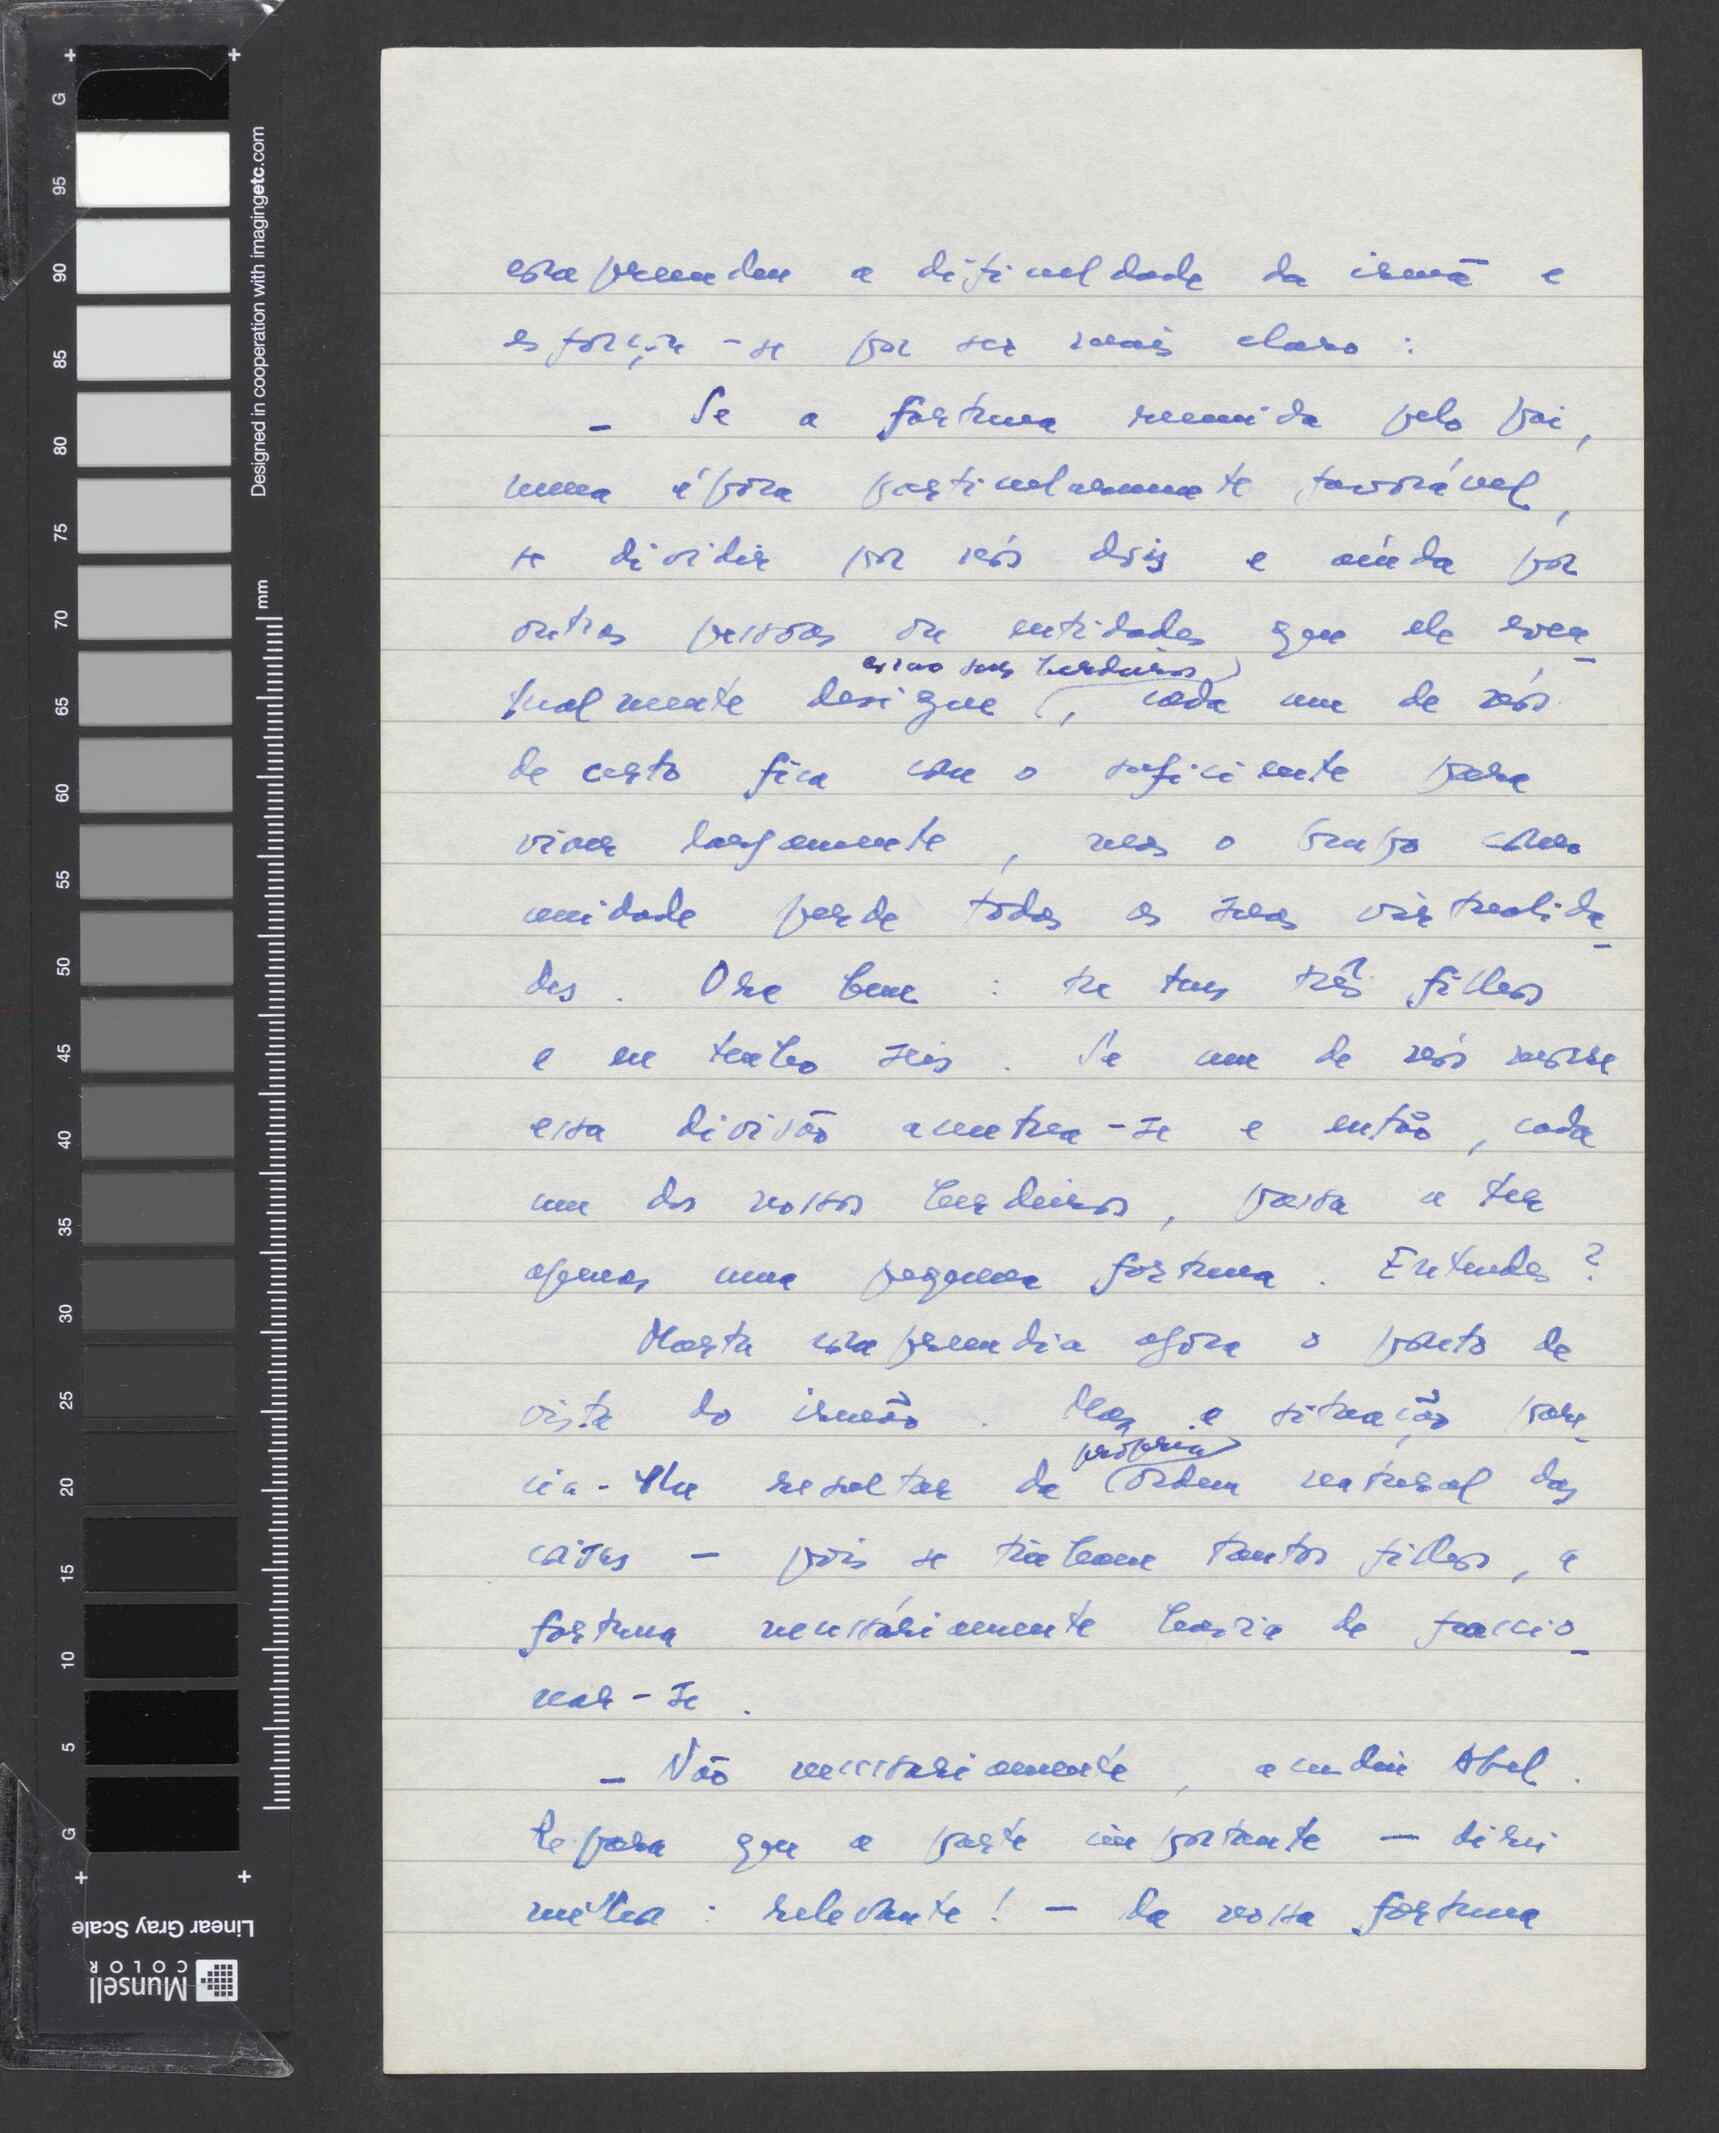 G
95
90
85
80
75
70
65
60
55
50
45
40
35
30
25
20
15
10
5
G
Designed in cooperation with imagingetc.com
mm
Linear Gray Scale
Munsell
COLOR
compreendeu a dificuldade da irmã e
esforçou-se por ser mais claro :
– Se a fortuna reunida pelo pai,
numa época particularmente favorável,
se dividir por nós dois e ainda por
outras pessoas ou entidades que ele even-
como seus herdeiros
tualmente designe , cada um de nós
de certo fica com o suficiente para
viver largamente , mas o grupo como
unidade perde todas as suas virtualida-
des . Ora bem : tu tens três filhos
e eu tenho seis . Se um de nós morre
essa divisão acentua-se e então , cada
um dos nossos herdeiros , passa a ter
apenas uma pequena fortuna . Entendes ?
Marta compreendia agora o ponto de
vista do irmão . Mas a situação pare-
própria
cia-lhe resultar da ordem natural das
coisas – pois se tinham tantos filhos , a
fortuna necessáriamente havia de fraccio-
nar-se .
– Não necessariamente , acudiu Abel .
Repara que a parte importante – direi
melhor : relevante ! – da nossa fortuna